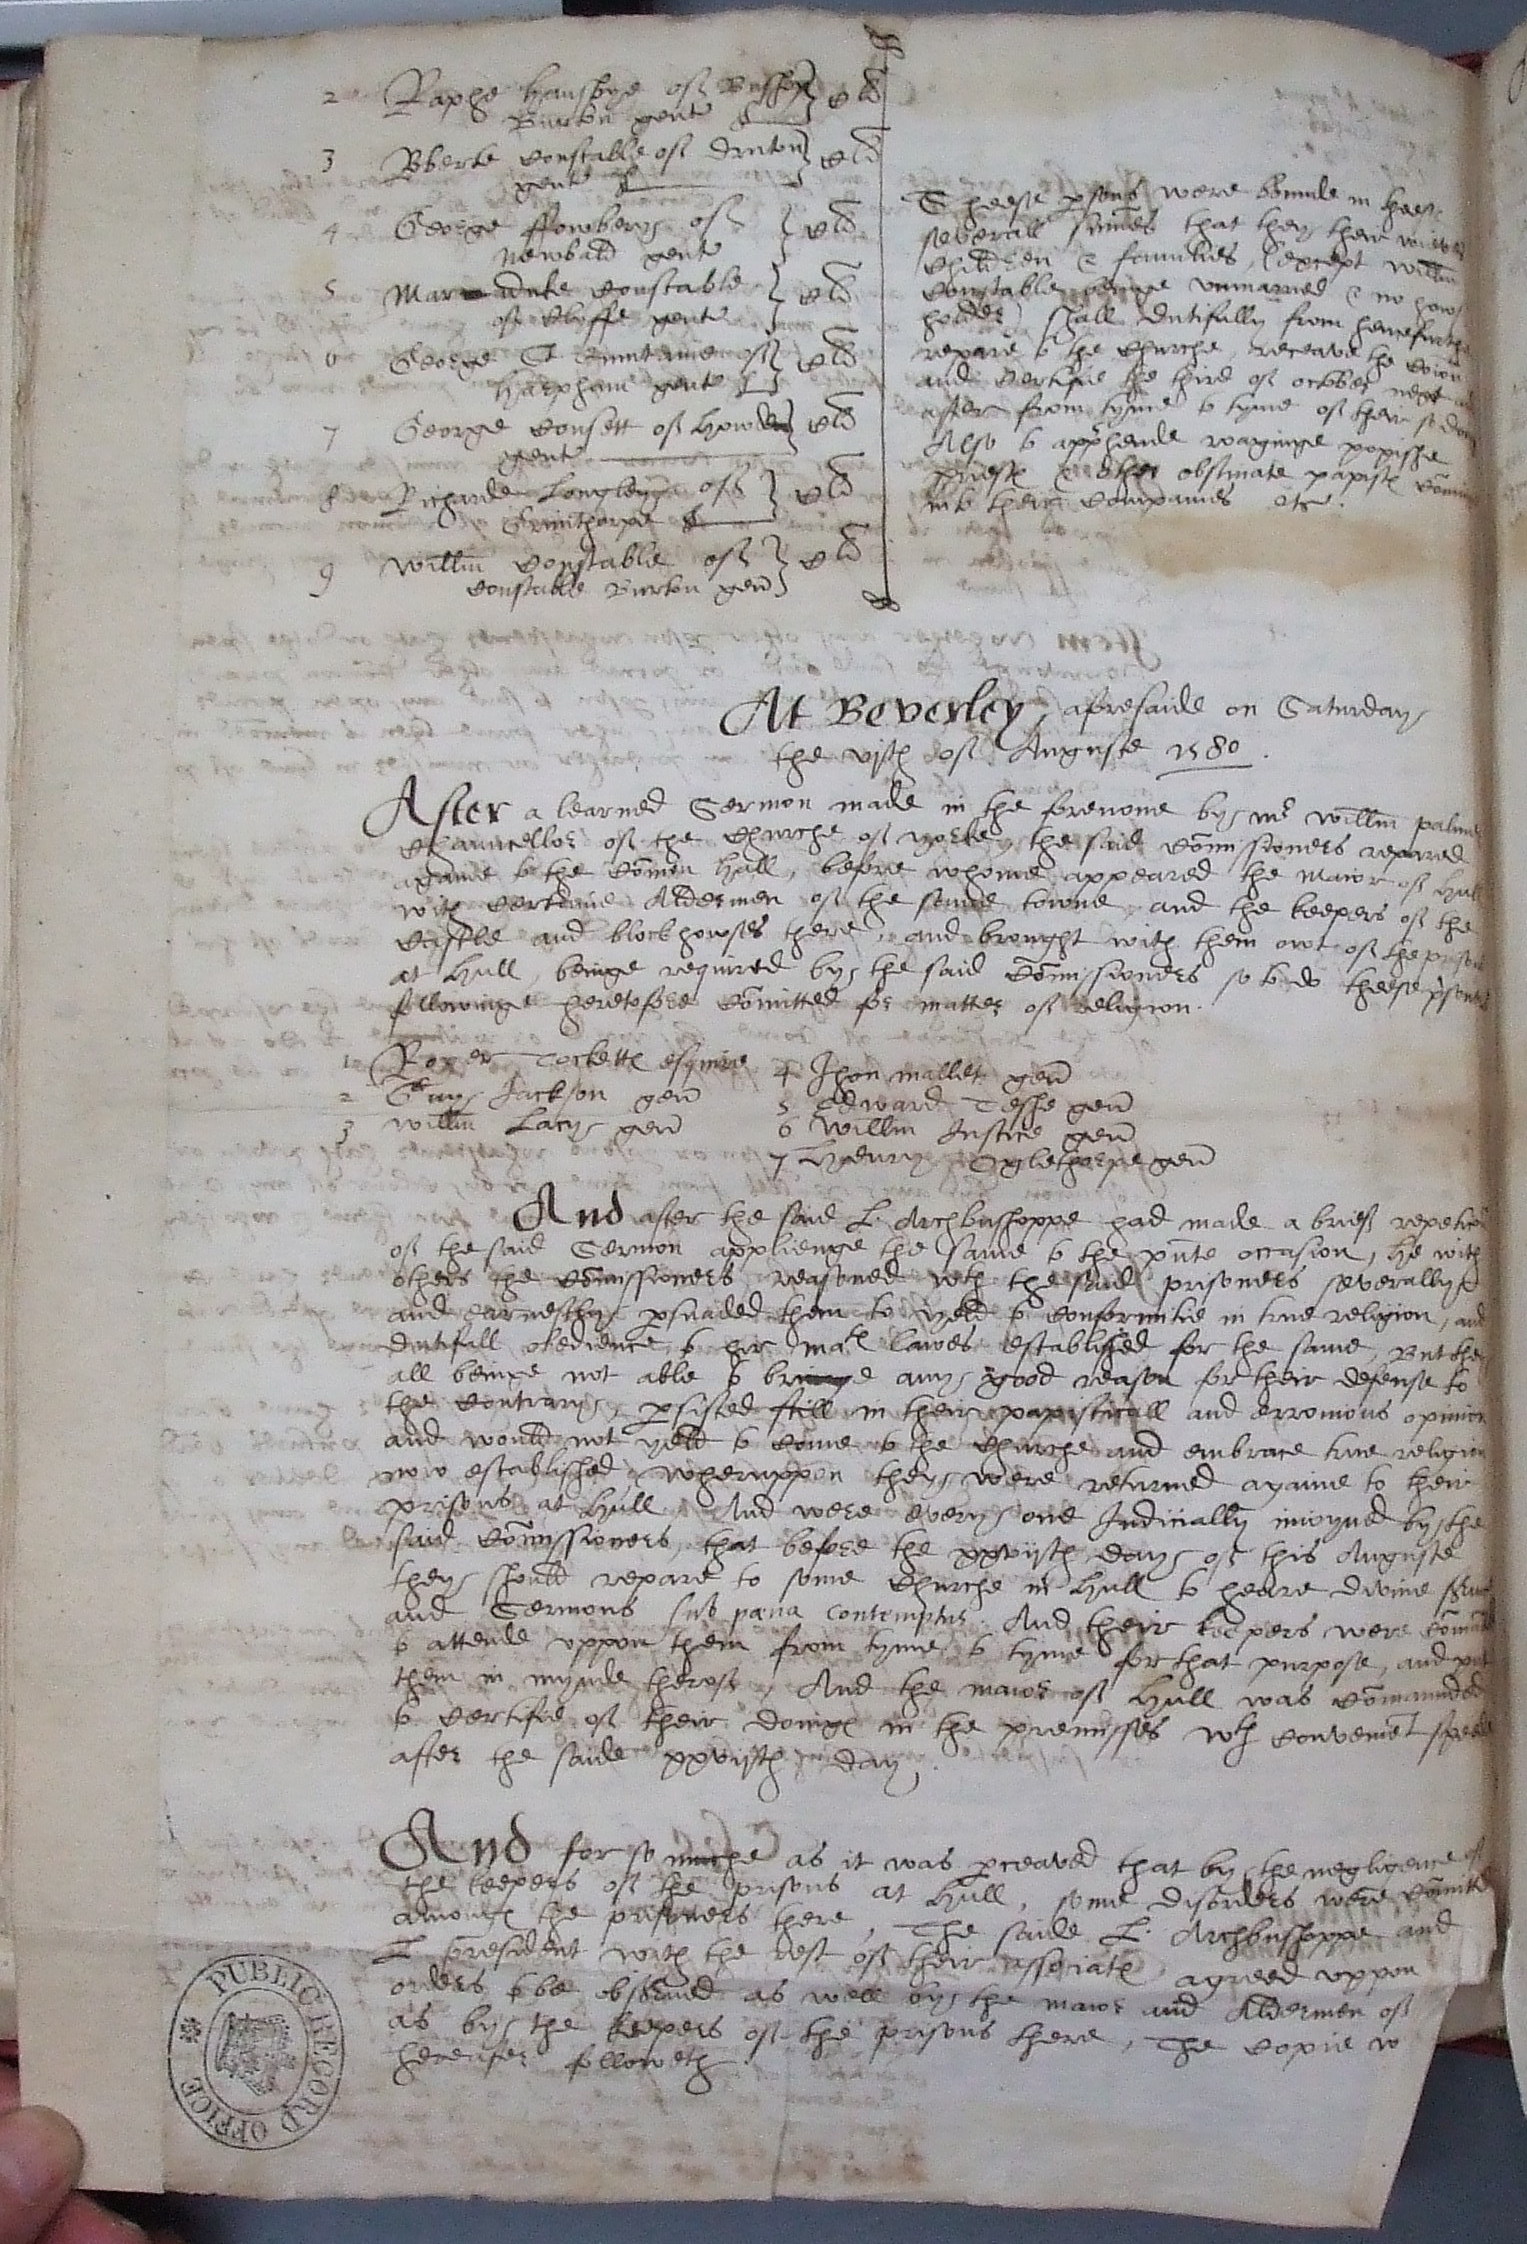 2 Raphe Hansbye of Busshop } CLli
Burton gente
3 Roberte Constable of Druton } CLli
gente
4 George ffowbery of } CLli
Newbald gente
5 Marmaduke Constable } CLli
of Cliffe gente
6 George St Quintaine of } CLli
Harpham gente
7 George Consett of Howden } CLli
gente
8 Richarde Longley of } CLli
Grimthorpe
9 Willm Constable of } CLli
Constable Burton gen
Theese psons were bounde in theese
severall summes that they their wieves
Children & families, (except Willm
Constable beinge unmaried & no hows
holder) shall dutifully from hencefurthe
repare to the Churche, receave the Coion
and Certifie the third of october next and
after from tyme to tyme of their so doing
Also to apprhende vaginge popishe
priestes & other obstinate papistes Cominge
into their Companies etc.
At Beverley aforesaide on Saturday
the vjth of Auguste 1580.
After a learned Sermon made in the forenone by mr Willm palmer
Chauncellor of the Churche of yorke, the said Comissioners repared
againe to the Comon Hall, before whome appeared the Maior of Hull
with Certaine Aldermen of the same towne and the keepers of the
Castle and blockhowses there, and brought with them owt of the prisons
at Hull, beinge required by the said Comissioners so to do theese psones
followinge heretofore Comitted for matter of Religion.
1 Roger Tockettes esquire
2 Guy Jackson gen
3 Willm Lacy gen
4 Jhon mallet gen
5 Edward Teshe gen
6 Willm Justice gen
7 Henry Oglethorpe gen
And after the said L. Archbusshoppe had made a brief repeticon
of the said Sermon applienge the same to the pnte occasion, he with
others the Comissioners reasoned wth the said prisoners severally
and earnestly psuaded them to yeld to Conformitie in true religion, and
dutifull obedience to hir matˢ lawes established for the same, But they
all beinge not able to bringe any good reason for their defense to
the Contrary, psisted still in their papisticall and erronious opinion
and would not yeld to Come to the Churche and embrace true religion
now established, wheruppon they were returned againe to their
prisons at Hull. And were every one Judicially injoyned by the
said Comissioners, that before the xxviijth day of this Auguste
they should repare to some Churche in Hull to heare divine service
and Sermons sub pœna contemptus. And their keepers were comaunded
to attende uppon them from tyme to tyme for that purpose, and put
them in mynde therof, And the maior of Hull was Comaunded
to Certifie of their doinges in the premisses wth Convenient speede
after the saide xxviijth day.
And for so muche as it was pceaved that by the negligence of
the keepers of the prisons at Hull, some disorders were Comitted
amonges the prisoners there, The saide L. Archbusshoppe and
L president with the rest of their associates agreed uppon
orders to be observed as well by the maior and Aldermen of
as by the keepers of the prisons there, The Copie w
hereafter followeth
PUBLIC RECORD OFFICE